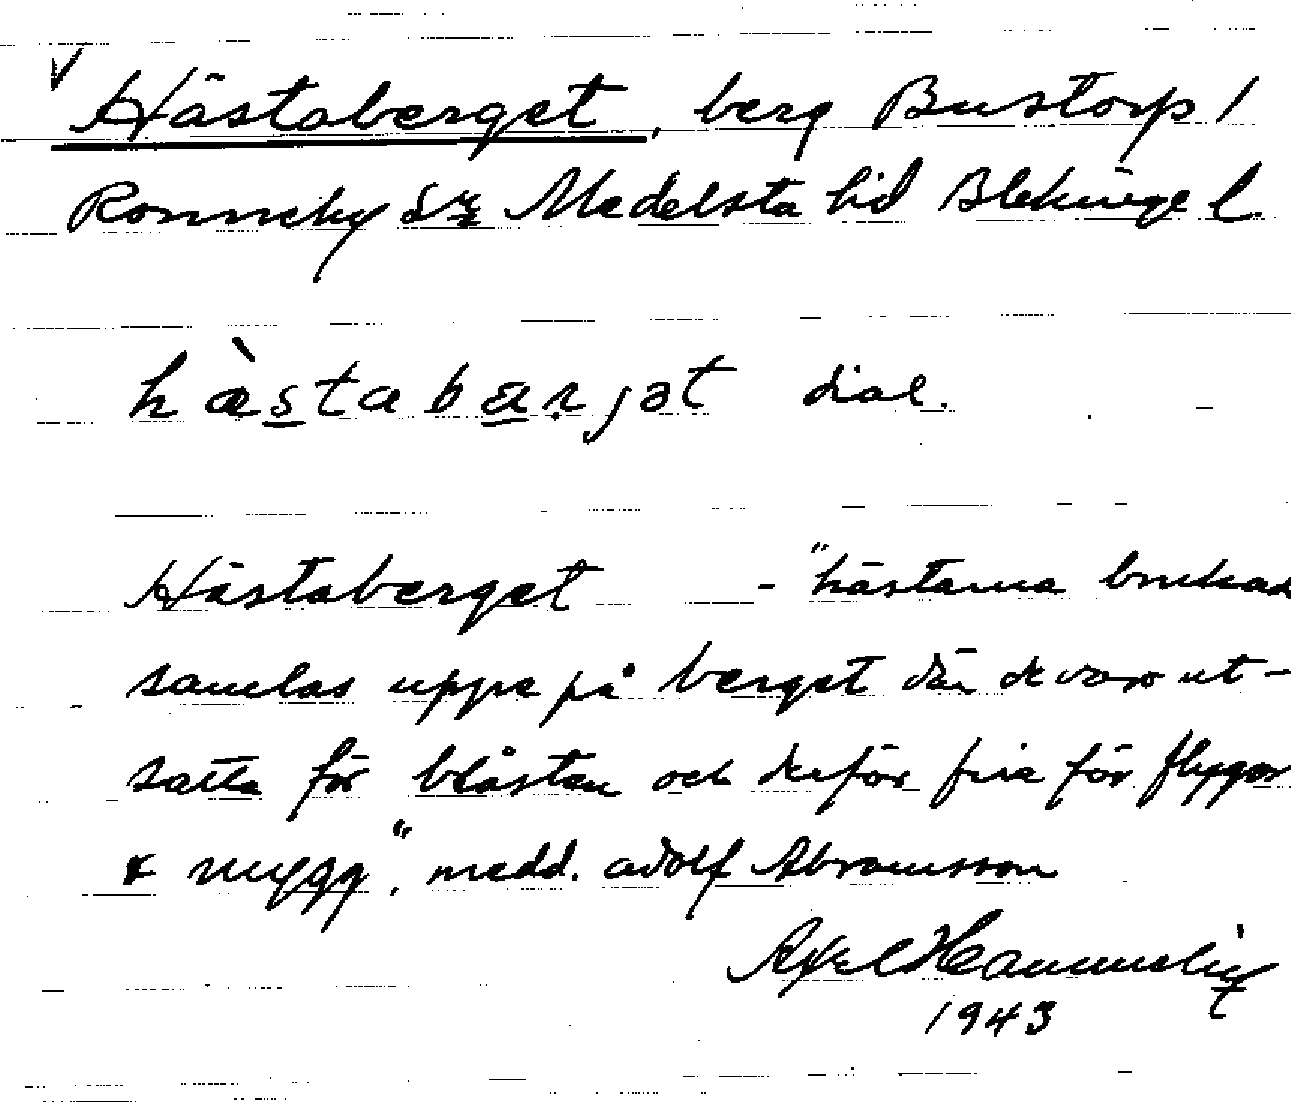 Hästaberget, berg Bustorp 1
Ronneby sz Medelsta hd Blekinge l.
hæ̀stabarjət dial.
Hästaberget - "hästarna brukad
samlas uppe på berget där de voro ut-
satta för blåsten och därför fria för flygor
& mygg", medd. Adolf Abramsson
Axel
1943